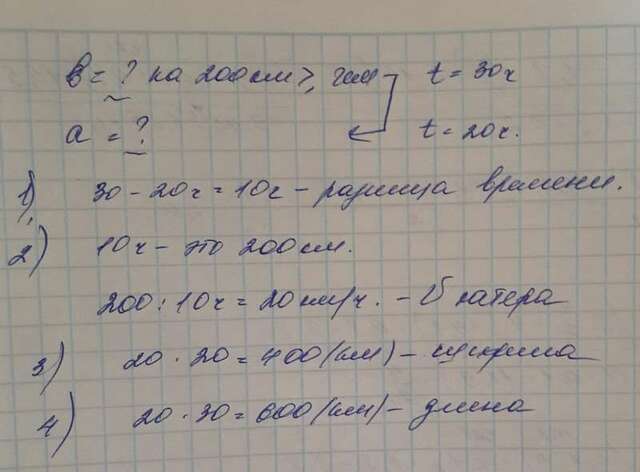 в = ? на 200 км >, чем t = 30ч
а = ? t = 20ч.
1) 30 - 20ч = 10ч - разница времени.
2) 10ч - это 200 км.
200 : 10ч = 20 км/ч. - V катера
3) 20 · 20 = 400 (км) - ширина
4) 20 · 30 = 600 (км) - длина